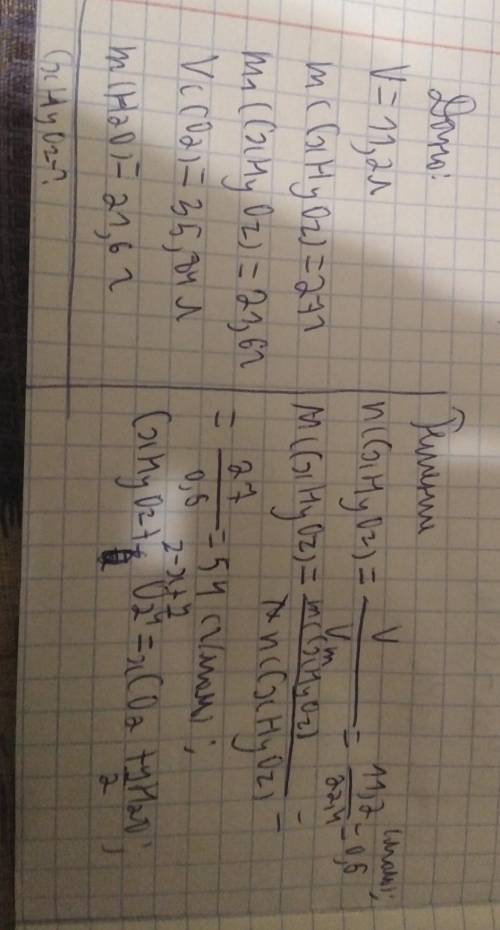 Дано:
V = 11,2 л
m(CxHyOz) = 27 г
m1(CxHyOz) = 21,6 г
V(CO2) = 35,84 л
m(H2O) = 21,6 г
CxHyOz - ?
Решение
n(CxHyOz) = V / Vm = 11,2 / 22,4 = 0,5 (моль);
M(CxHyOz) = m(CxHyOz) / n(CxHyOz) =
= 27 / 0,5 = 54 (г/моль);
CxHyOz + O2 = xCO2 + y/2 H2O;